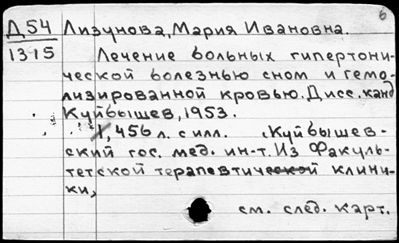 6
Д54 Лизунова, Мария Ивановна.
1315 Лечение больных гипертони-
ческой болезнью сном и гемо-
лизированной кровью. Дисс. канд
Куйбышев, 1953.
456 л. с илл. Куйбышев-
ский гос. мед. ин-т. Из Факуль-
тетской терапевтической клини-
ки,
см. след. карт.